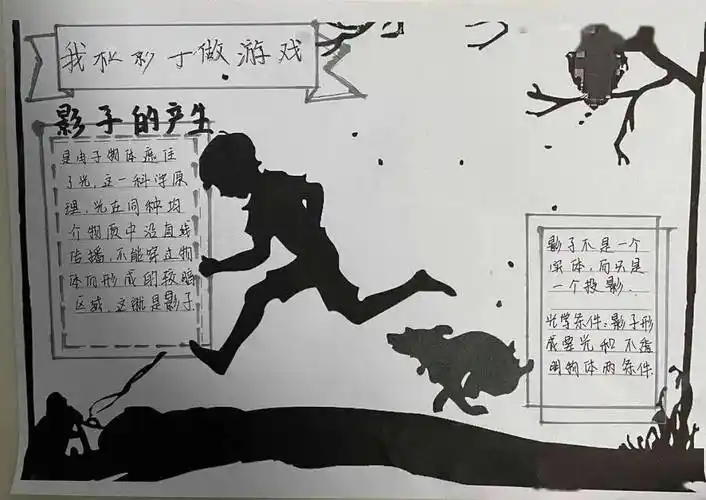 我和影子做游戏
影子的产生
是由于物体遮住
了光,这一科学原
理,光在同种均
介物质中沿直线
传播,不能穿过物
体而形成的较暗
区域,这就是影子
影子不是一个
实体,而只是
一个投影.
光学条件:影子形
成要光和不透
明物体两条件.